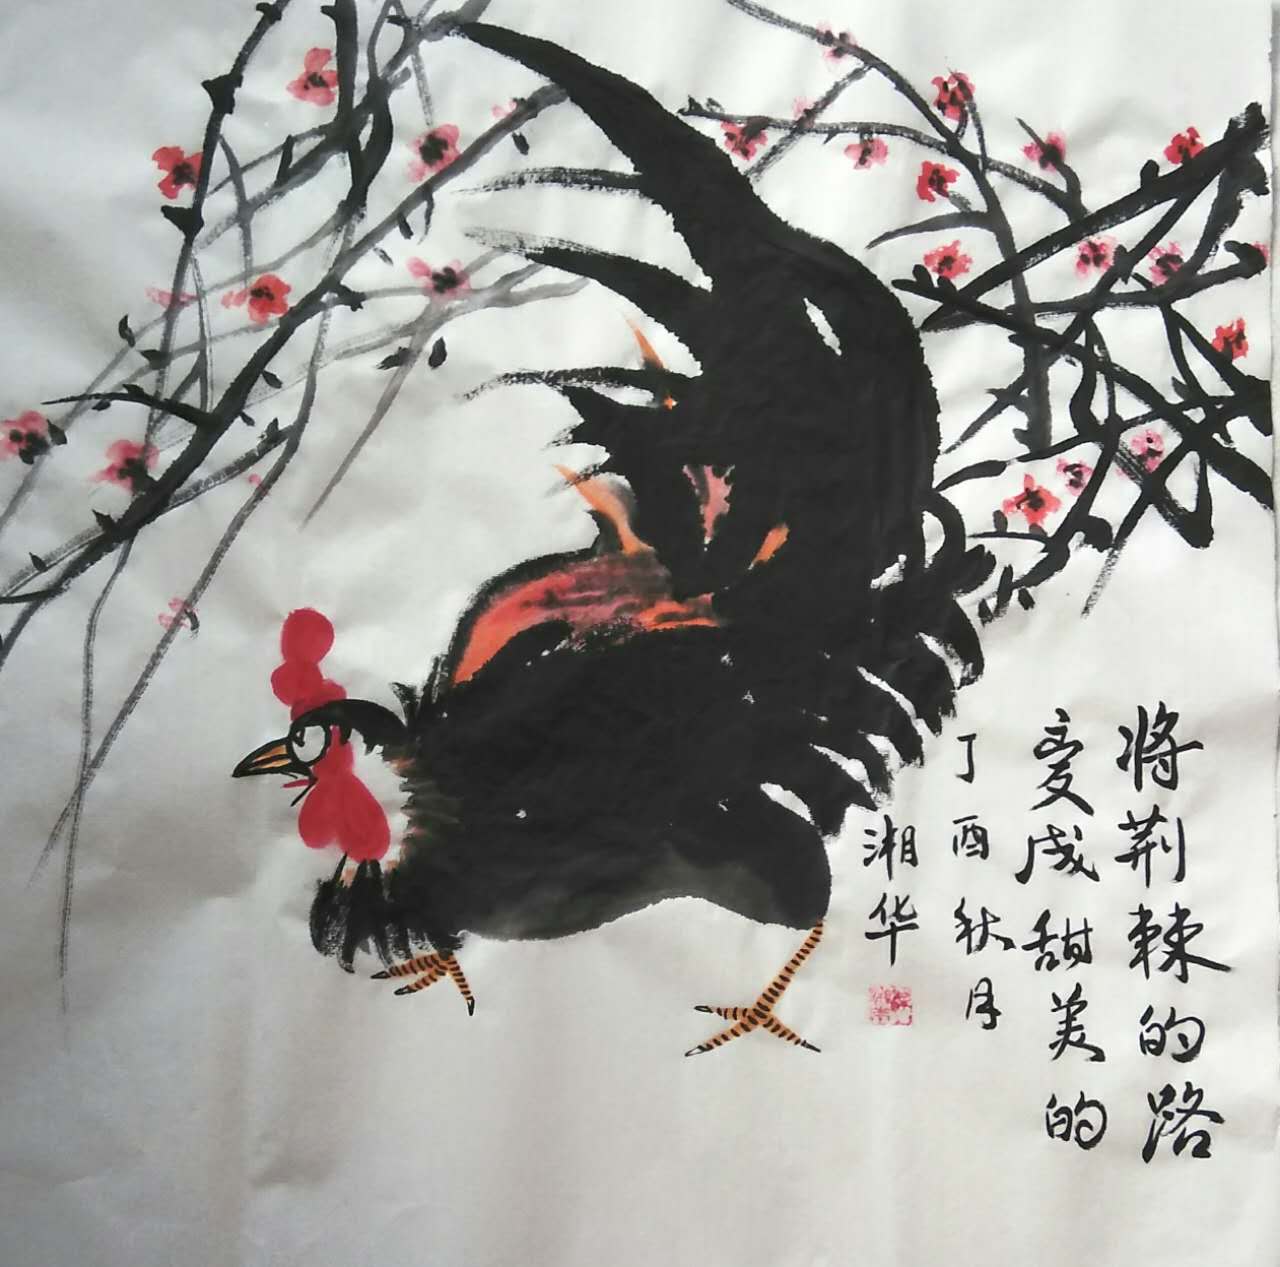 将荆棘的路
变成甜美的
丁酉秋月
湘华